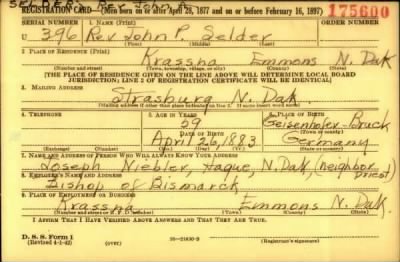 SELDER, REV. JOHN P.
REGISTRATION CARD—(Men born on or after April 28, 1877 and on or before February 16, 1897) 175600
SERIAL NUMBER 1. NAME (Print)
U 396 Rev John P. Selder
(First) (Middle) (Last)
2. PLACE OF RESIDENCE (Print)
Krassna Emmons N. Dak
(Number and street) (Town, township, village, or city) (County) (State)
[THE PLACE OF RESIDENCE GIVEN ON THE LINE ABOVE WILL DETERMINE LOCAL BOARD
JURISDICTION; LINE 2 OF REGISTRATION CERTIFICATE WILL BE IDENTICAL]
3. MAILING ADDRESS
Strasburg N Dak.
(Mailing address if other than place indicated on line 2. If same insert word same)
4. TELEPHONE 5. AGE IN YEARS 6. PLACE OF BIRTH
59 Geisenhofer-Bruck
DATE OF BIRTH (Town or county)
April 26, 1883 Germany
(Exchange) (Number) (Mo.) (Day) (Yr.) (State or country)
7. NAME AND ADDRESS OF PERSON WHO WILL ALWAYS KNOW YOUR ADDRESS
Joseph Niebler, Hague, N. Dak, (neighbor priest)
8. EMPLOYER'S NAME AND ADDRESS
Bishop of Bismarck
9. PLACE OF EMPLOYMENT OR BUSINESS
Krassna Emmons N. Dak.
(Number and street or R. F. D. number) (Town) (County) (State)
I AFFIRM THAT I HAVE VERIFIED ABOVE ANSWERS AND THAT THEY ARE TRUE.
D. S. S. Form 1
(Revised 4-1-42) (over) 16—21630-2 (Registrant's signature)